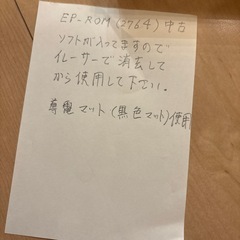 EP-ROM (2764) 中古
ソフトが入ってますので
イレーサーで消去して
から使用して下さい。
導電マット (黒色マット)使用